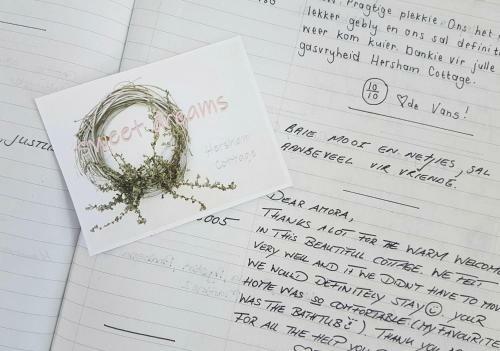 Pragtige plekkie. Ons het
lekker gebly en ons sal definiti
weer kom kuier. Dankie vir julle
gasvryheid Hersham Cottage.
10/10 ♡ de Vans!
BAIE MOOI EN NETJIES, SAL
AANBEVEEL VIR VRIENDE.
DEAR AMORA,
THANKS A LOT FOR THE WARM WELCOME
IN THIS BEAUTIFUL COTTAGE. WE FELT
VERY WELL AND IF WE DIDN'T HAVE TO MOVE
WE WOULD DEFINITELY STAY☺. YOUR
HOME WAS SO COMFORTABLE (MY FAVOURITE
WAS THE BATHTUB). THANK YOU A
FOR ALL THE HELP YOU
sweet dreams
Hersham
Cottage
005